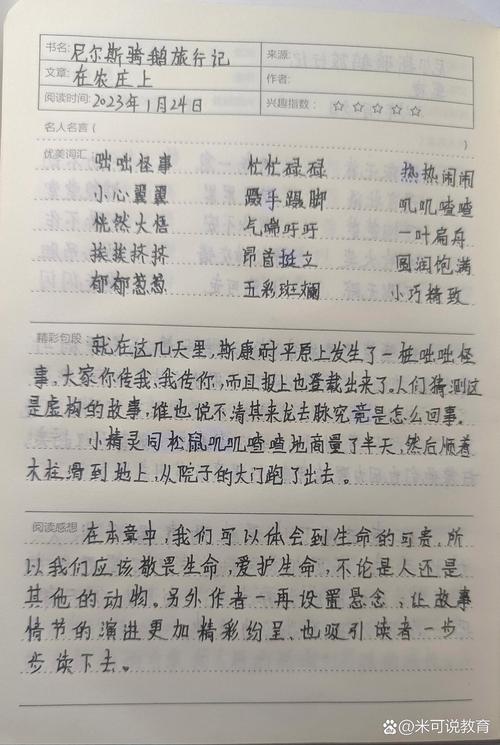 书名: 尼尔斯骑鹅旅行记 来源:
文章: 在农庄上 作者:
阅读时间: 2023年1月24日 兴趣指数: ☆ ☆ ☆ ☆ ☆
名人名言 (
优美词汇: 咄咄怪事 忙忙碌碌 热热闹闹
小心翼翼 蹑手蹑脚 叽叽喳喳
恍然大悟 气喘吁吁 一叶扁舟
挨挨挤挤 昂首挺立 圆润饱满
郁郁葱葱 五彩斑斓 小巧精致
精彩句段: 就在这几天里,斯康耐平原上发生了一桩咄咄怪
事,大家你传我,我传你,而且报上也登载出来了。人们猜测这
是虚构的故事,谁也说不清其来龙去脉究竟是怎么回事。
小精灵同松鼠叽叽喳喳地商量了半天,然后顺着
木柱滑到地上,从院子的大门跑了出去。
阅读感想: 在本章中,我们可以体会到生命的可贵,所
以我们应该敬畏生命,爱护生命,不论是人还是
其他的动物。另外作者一再设置悬念,让故事
情节的演进更加精彩纷呈、也吸引读者一步
步读下去。
米可说教育